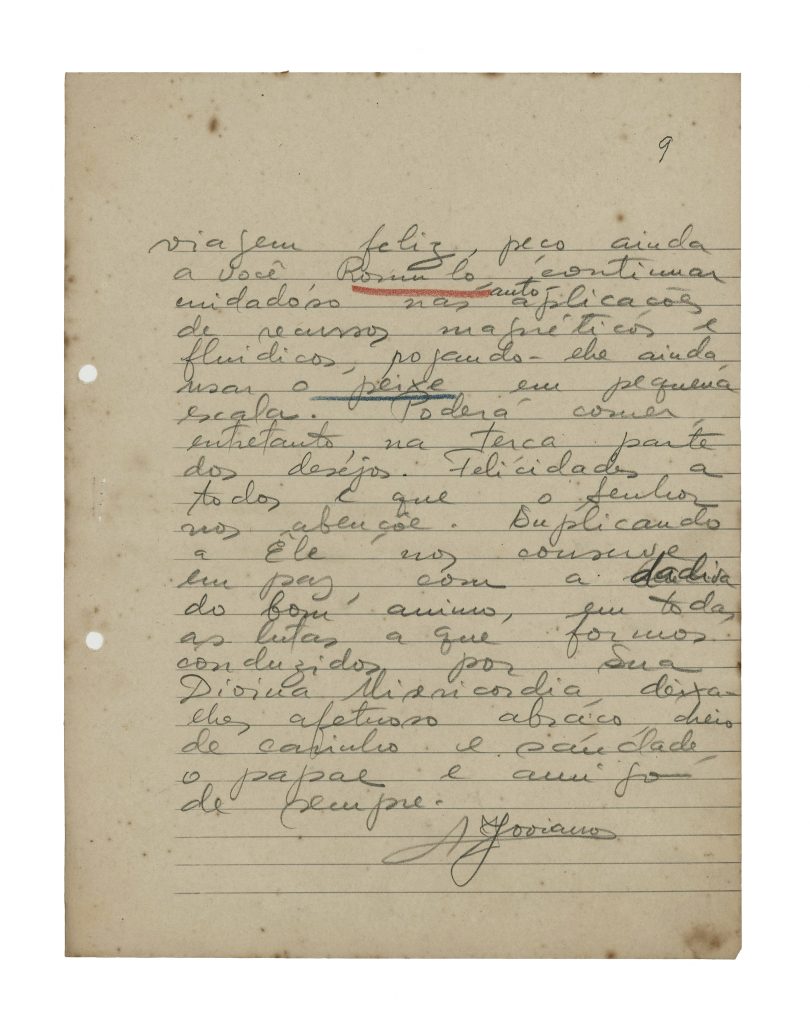 9
viagem feliz, peço ainda
a você Romulo continuar
cuidadoso nas auto aplicações
de recursos magnéticos e
fluidicos, rogando-lhe ainda
usar o peixe em pequena
escala. Poderá comer,
entretanto, na terça parte
dos desejos. Felicidades a
todos e que o Senhor
nos abençôe. Suplicando
a Êle nos conserve
em paz, com a dadiva
do bom animo, em todas
as lutas a que formos
conduzidos por Sua
Divina Misericordia, deixa-
lhes afetuoso abraço, cheio
de carinho e saudade
o papae e amigo
de sempre.
A Joviano